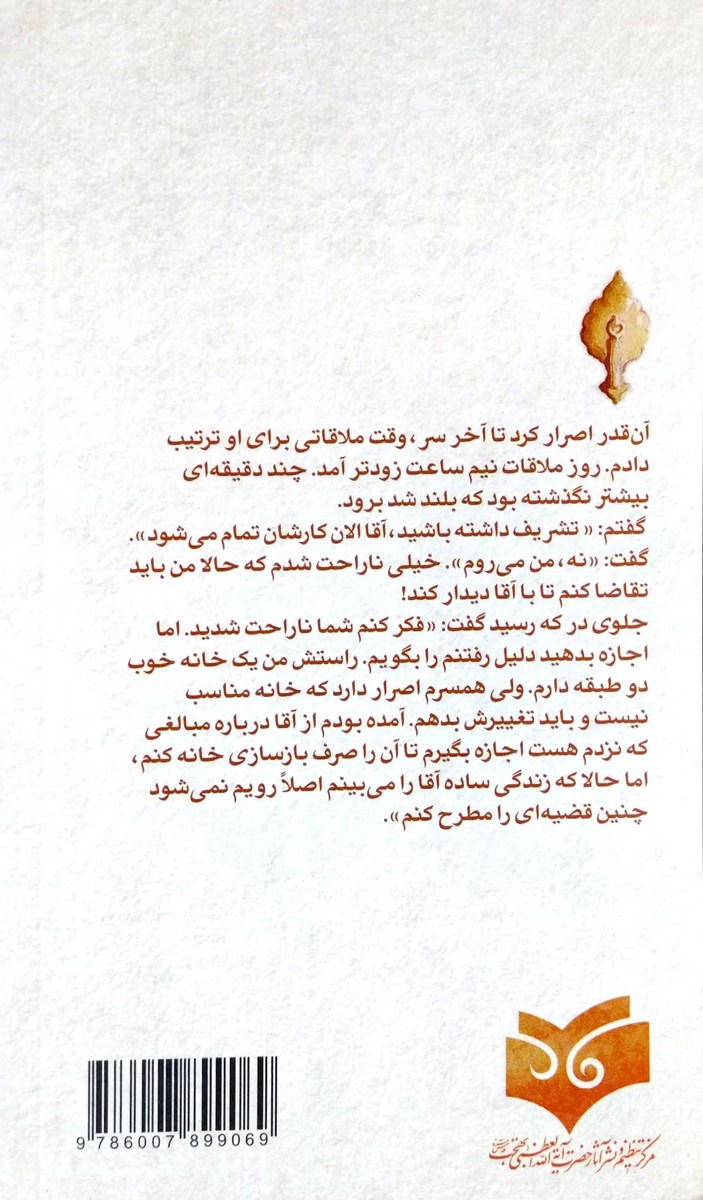 آن‌قدر اصرار کرد تا آخر سر، وقت ملاقاتی برای او ترتیب
دادم. روز ملاقات نیم ساعت زودتر آمد. چند دقیقه‌ای
بیشتر نگذشته بود که بلند شد برود.
گفتم: «تشریف داشته باشید، آقا الان کارشان تمام می‌شود».
گفت: «نه، من می‌روم». خیلی ناراحت شدم که حالا من باید
تقاضا کنم تا با آقا دیدار کند!
جلوی در که رسید گفت: «فکر کنم شما ناراحت شدید. اما
اجازه بدهید دلیل رفتنم را بگویم. راستش من یک خانه خوب
دو طبقه دارم. ولی همسرم اصرار دارد که خانه مناسب
نیست و باید تغییرش بدهم. آمده بودم از آقا درباره مبالغی
که نزدم هست اجازه بگیرم تا آن را صرف بازسازی خانه کنم،
اما حالا که زندگی ساده آقا را می‌بینم اصلاً رویم نمی‌شود
چنین قضیه‌ای را مطرح کنم».
9 786007 899069
مرکز تنظیم و نشر آثار حضرت آیة الله العظمی بهجت